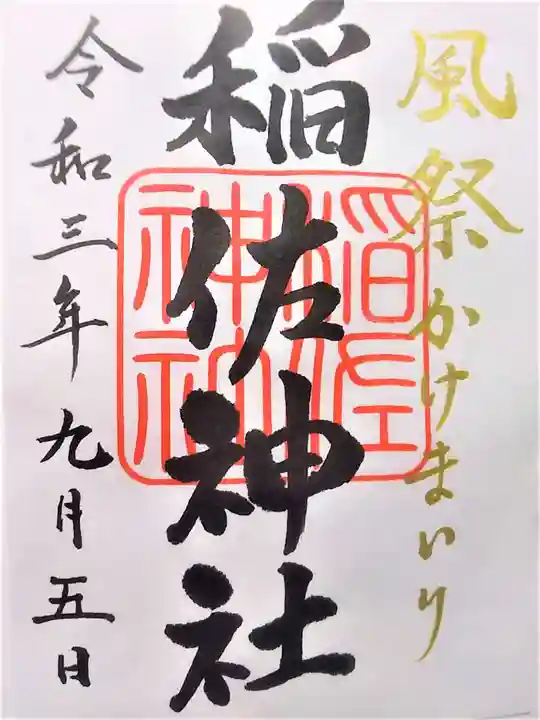 風祭かけまいり
稲佐神社
稲佐神社
令和三年九月五日